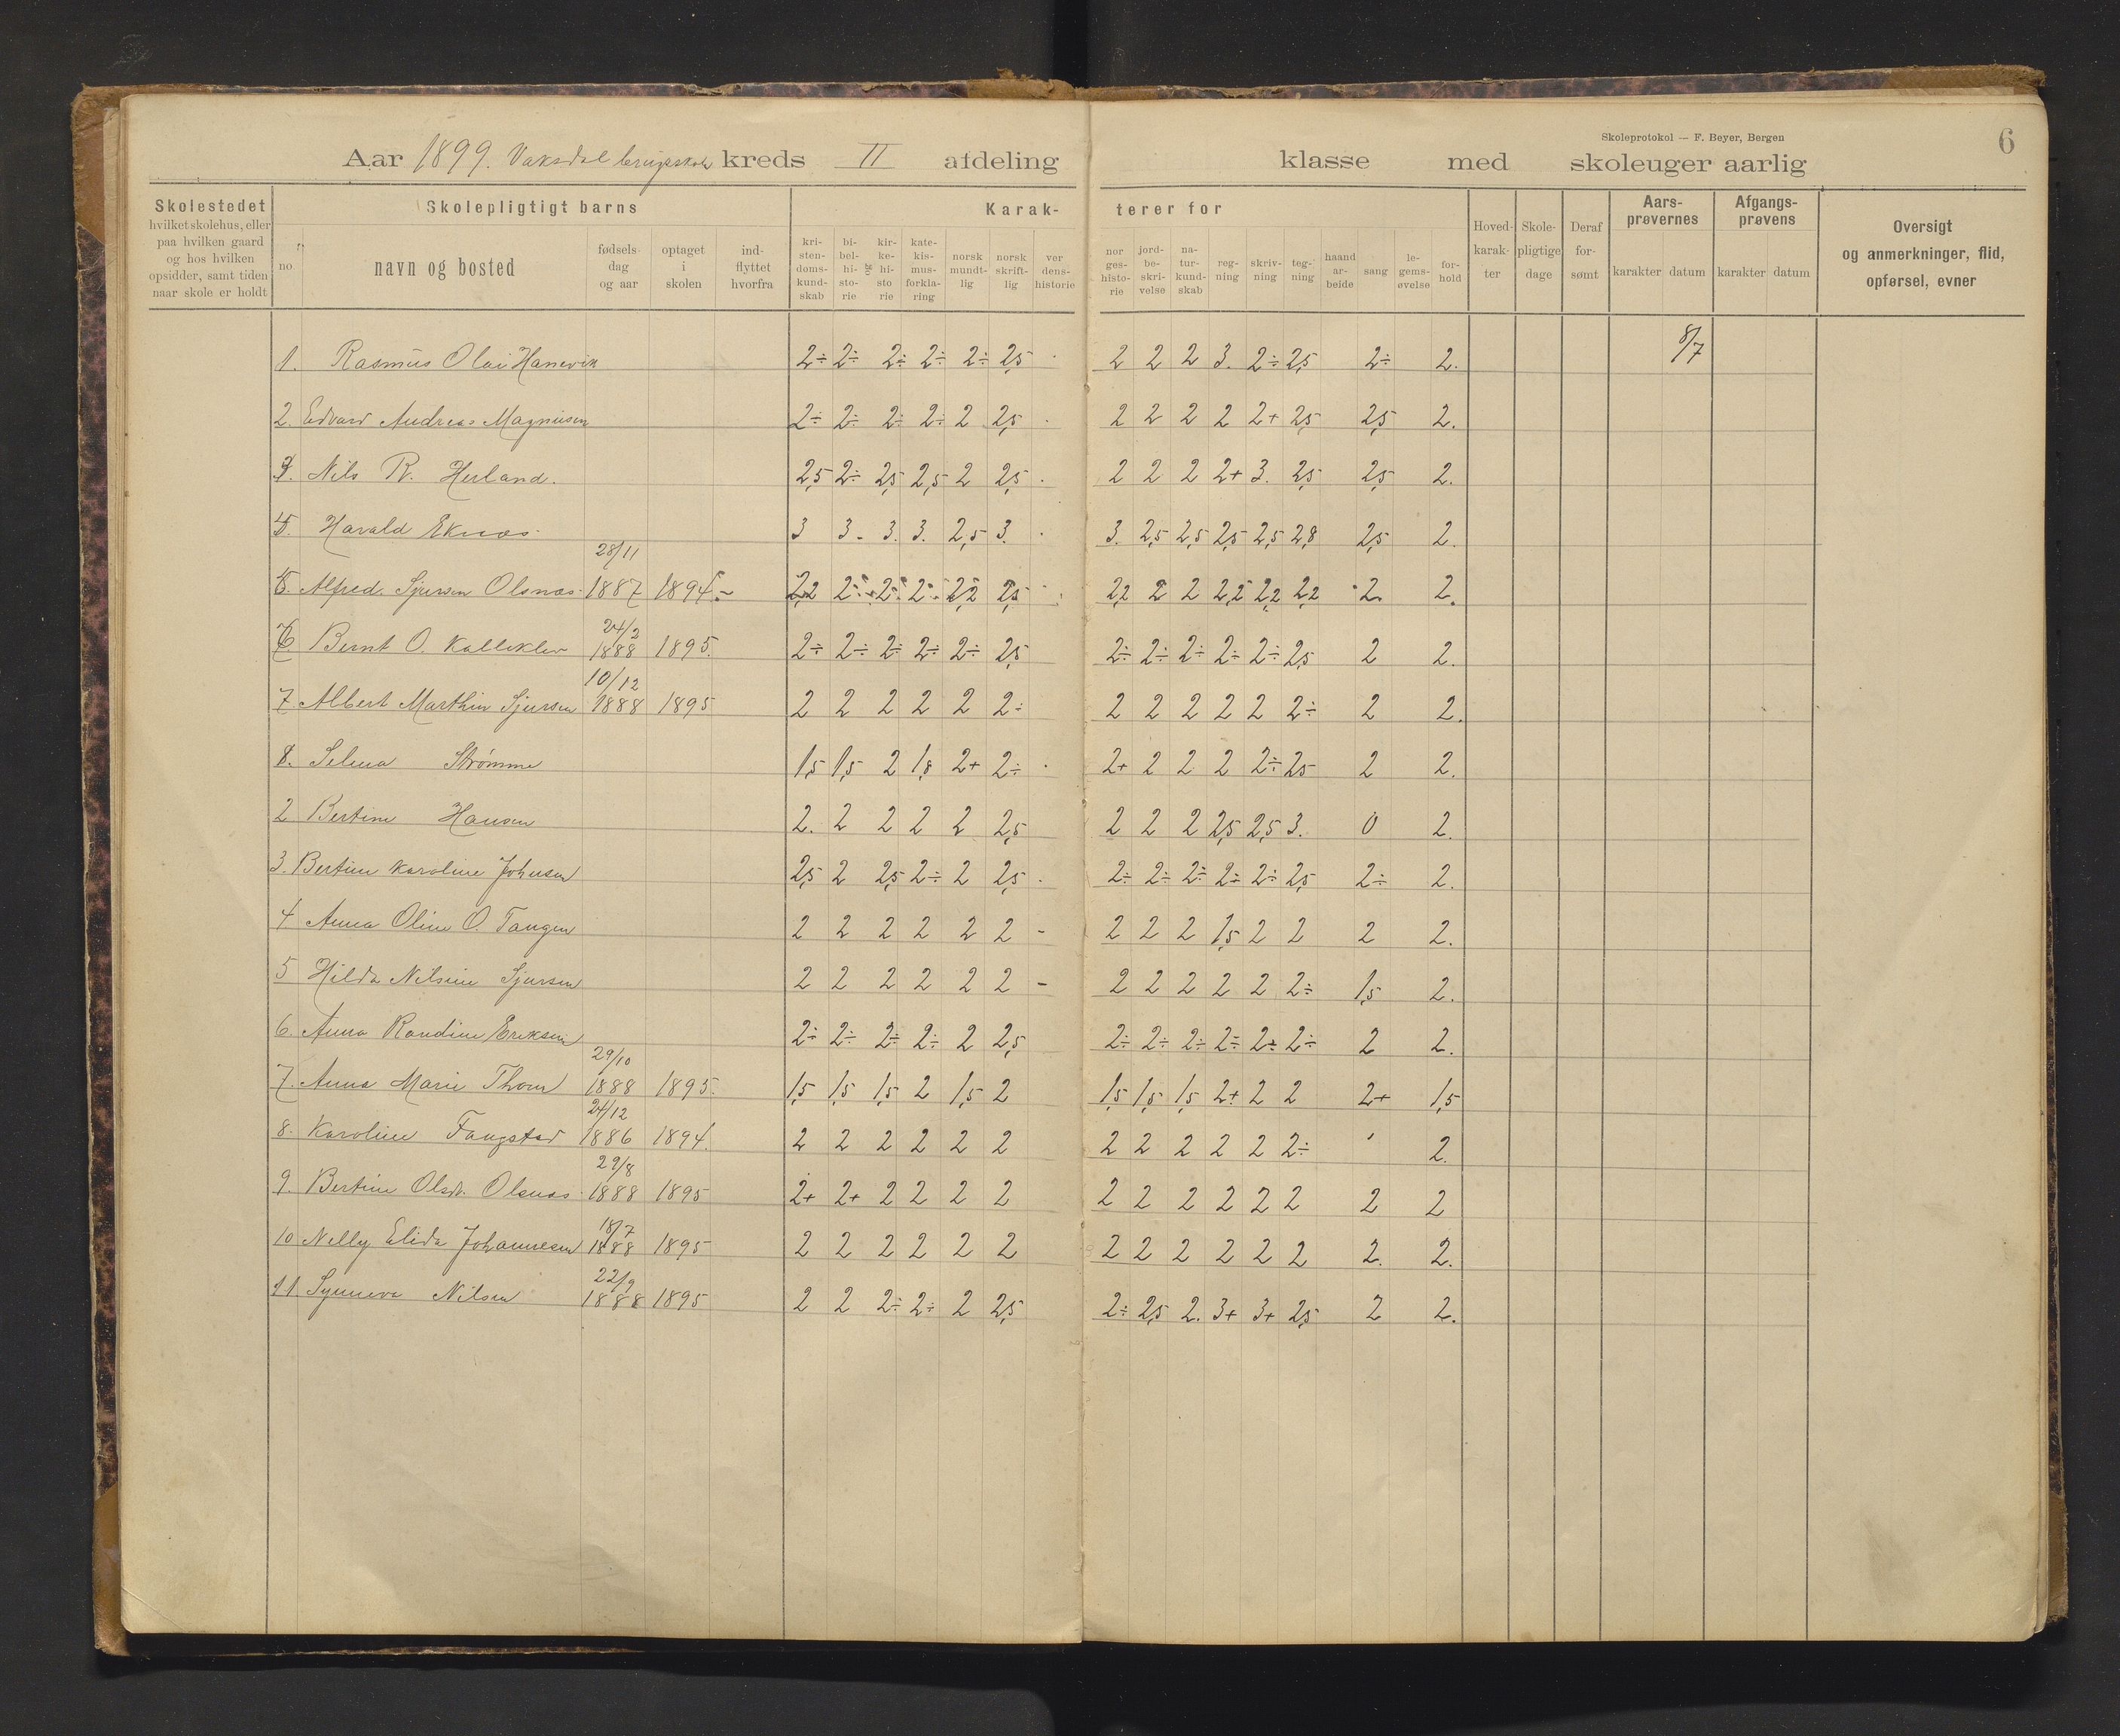 Skoleprotokol — F. Beyer, Bergen
6
Aar 1899. Vaksdal brugsskole kreds II afdeling klasse med skoleuger aarlig
Skolestedet hvilket skolehus, eller paa hvilken gaard og hos hvilken opsidder, samt tiden naar skole er holdt
Skolepligtigt barns
no navn og bosted fødsels dag og aar optaget i skolen ind- flyttet hvorfra
Karak- terer for
kri- sten- doms- kund- skab bi- bel- hi- sto- rie kir- ke- hi- sto rie kate- kis- mus- forkla- ring norsk mundt- lig norsk skrift- lig ver dens- historie
nor ges- histo- rie jord- be- skri- velse na- tur- kund- skab reg- ning skriv- ning teg- ning haand ar- beide sang le- gems- øvelse for- hold
Hoved- karak- ter Skole- pligtige dage Deraf for- sømt
Aars- prøvernes karakter datum
Afgangs- prøvens karakter datum
Oversigt og anmerkninger, flid, opførsel, evner
1. Rasmus Olai Hanevik 2÷ 2÷ 2÷ 2÷ 2÷ 2,5 2 2 2 3. 2÷ 2,5 2÷ 2. 8/7
2. Edvard Andreas Magnusen 2÷ 2÷ 2÷ 2÷ 2 2,5 2 2 2 2 2+ 2,5 2,5 2.
3. Nils R. Herland. 2,5 2÷ 2,5 2,5 2 2,5 2 2 2 2+ 3. 2,5 2,5 2.
4. Harald Eknæs 3 3. 3. 3. 2,5 3. 3. 2,5 2,5 2,5 2,5 2,8 2,5 2.
5. Alfred Sjursen Olsnæs 28/11 1887 1894. 2,2 2÷ 2÷ 2÷ 2,2 2,5 2,2 2 2 2,2 2,2 2,2 2. 2.
6. Bernt O. Kalleklev 24/2 1888 1895. 2÷ 2÷ 2÷ 2÷ 2÷ 2,5 2÷ 2÷ 2÷ 2÷ 2÷ 2,5 2 2.
7. Albert Marthin Sjursen 10/12 1888 1895 2 2 2 2 2 2÷ 2 2 2 2 2 2÷ 2 2.
1. Selma Strømme 1,5 1,5 2 1,8 2+ 2÷ 2+ 2 2 2 2÷ 2,5 2 2.
2 Bertine Hansen 2. 2 2 2 2 2,5 2 2 2 2,5 2,5 3. 0 2.
3. Bertine Karoline Johnsen 2,5 2 2,5 2÷ 2 2,5 2÷ 2÷ 2÷ 2÷ 2÷ 2,5 2÷ 2.
4 Anna Oline O. Tangen 2 2 2 2 2 2 – 2 2 2 1,5 2 2 2 2.
5 Hilda Nilsine Sjursen 2 2 2 2 2 2 – 2 2 2 2 2 2÷ 1,5 2.
6. Anna Randine Eriksen 2÷ 2÷ 2÷ 2÷ 2 2,5 2÷ 2÷ 2÷ 2÷ 2÷ 2÷ 2 2.
7. Anna Marie Thom 29/10 1888 1895. 1,5 1,5 1,5 2 1,5 2 1,5 1,5 1,5 2+ 2 2 2+ 1,5
8. Karoline Faugstad 24/12 1886 1894. 2 2 2 2 2 2 2 2 2 2 2 2÷ 2.
9. Bertine Olsd. Olsnæs 29/8 1888 1895 2+ 2+ 2 2 2 2 2 2 2 2 2 2 2 2
10 Nelly Elida Johannesen 18/7 1888 1895 2 2 2 2 2 2 2 2 2 2 2 2 2. 2.
11. Synneva Nilsen 22/9 1888 1895 2 2 2÷ 2÷ 2 2,5 2÷ 2,5 2. 3+ 3+ 2,5 2 2.